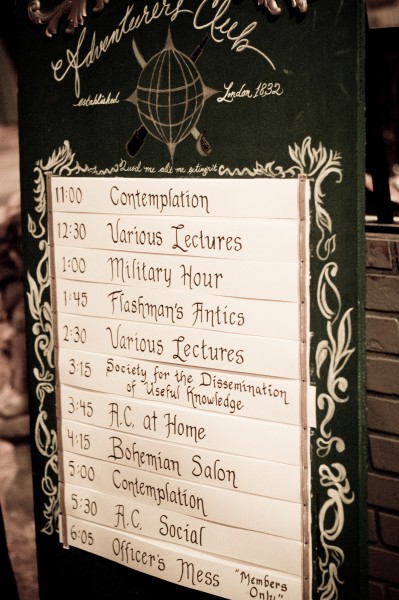 Adventurers Club
established London 1832
Quod me alit me extinguit
11:00 Contemplation
12:30 Various Lectures
1:00 Military Hour
1:45 Flashman's Antics
2:30 Various Lectures
3:15 Society for the Dissemination
of Useful Knowledge
3:45 A.C. at Home
4:15 Bohemian Salon
5:00 Contemplation
5:30 A.C. Social
6:05 Officer's Mess "Members
Only"